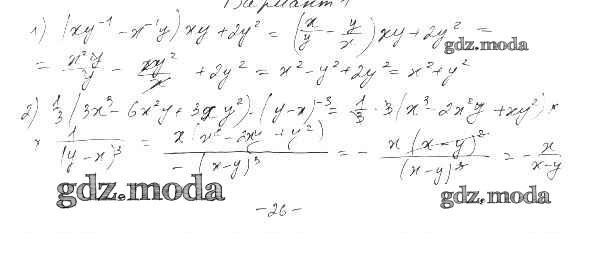 Вариант 1
1) (xy⁻¹ - x⁻¹y) xy + 2y² = (x/y - y/x) xy + 2y² =
gdz.moda
= x²y/y - xy²/x + 2y² = x² - y² + 2y² = x² + y²
2) 1/3 (3x³ - 6x²y + 3xy²) · (y-x)⁻³ = 1/3 · 3(x³ - 2x²y + xy²) ×
× 1/(y-x)³ = x(x² - 2xy + y²)/-(x-y)³ = - x(x-y)²/(x-y)³ = - x/x-y
gdz.moda
gdz.moda
- 26 -